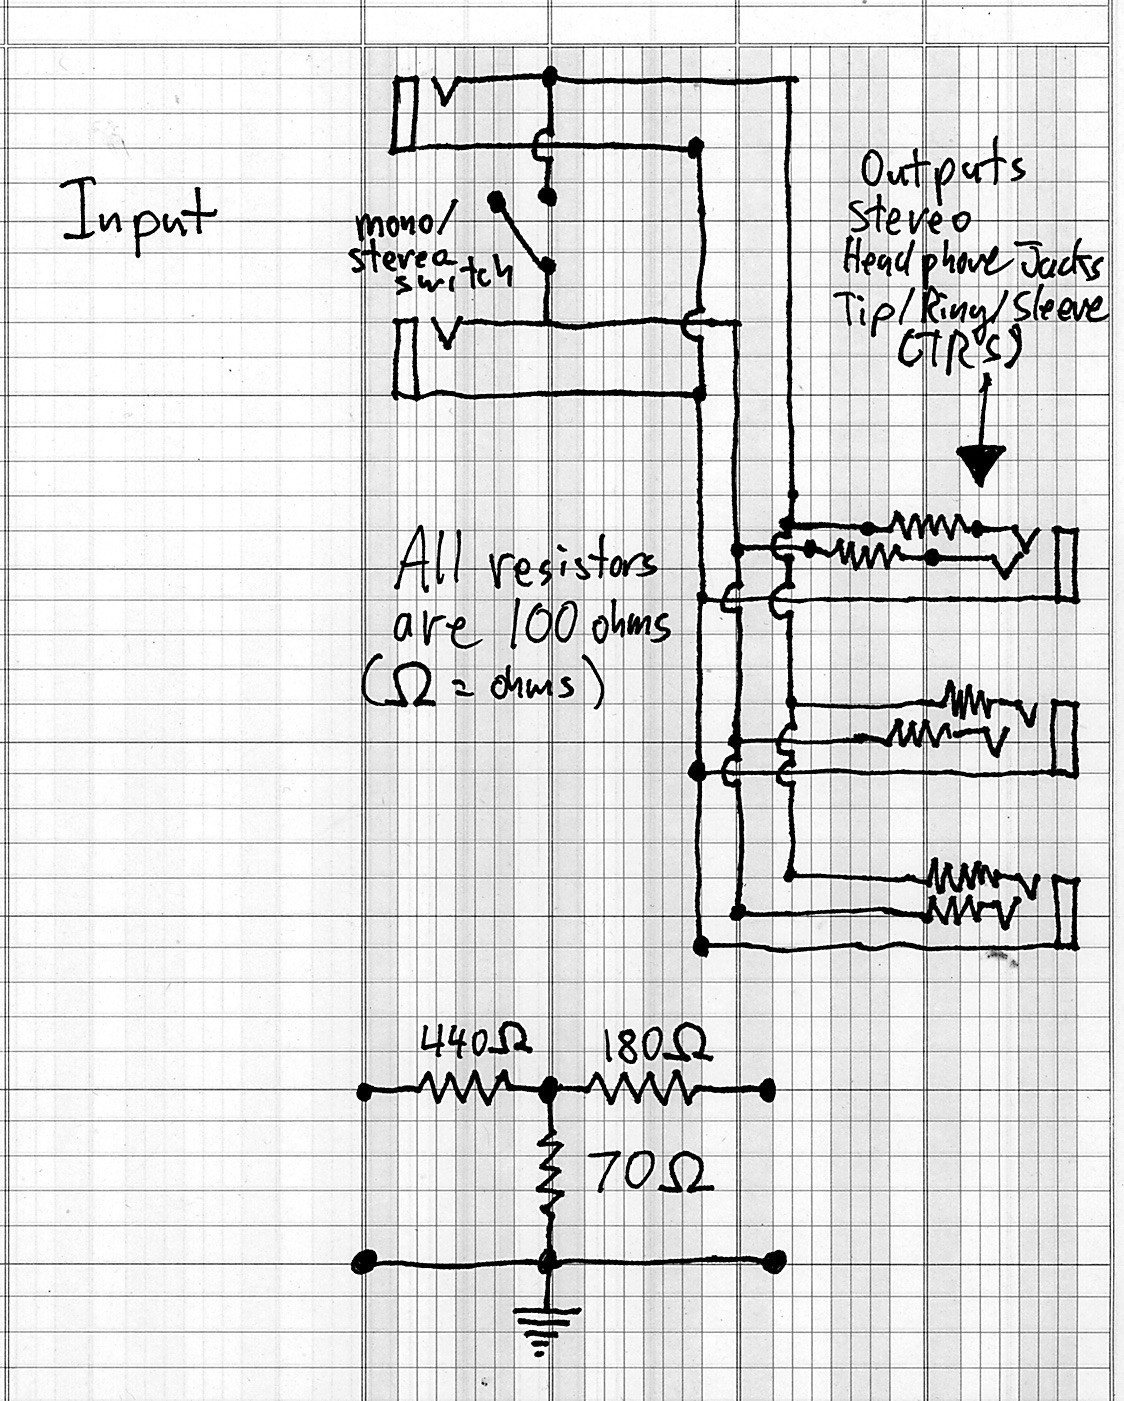 Input
mono/
stereo
switch
Outputs
stereo
Headphone Jacks
Tip/Ring/Sleeve
(TRS)
All resistors
are 100 ohms
(Ω = ohms)
440Ω
180Ω
70Ω